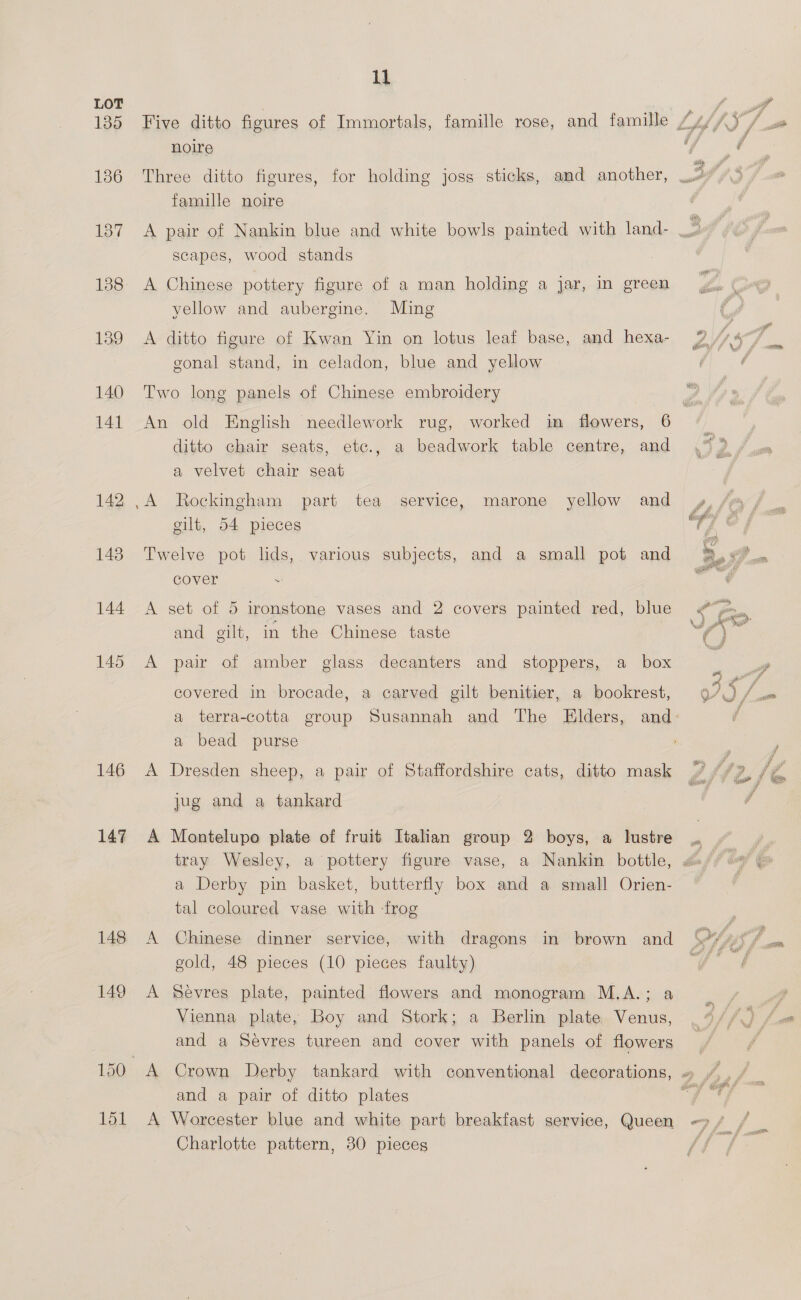 11
LOT
135 Five ditto figures of Immortals, famille rose, and famille
noire
136 Three ditto figures, for holding joss sticks, and another,
famille noire
137 A pair of Nankin blue and white bowls painted with land-
scapes, wood stands
138 A Chinese pottery figure of a man holding a jar, in green
yellow and aubergine. Ming
139 A ditto figure of Kwan Yin on lotus leaf base, and hexa-
gonal stand, in celadon, blue and yellow
140 Two long panels of Chinese embroidery
141 An old English needlework rug, worked in flowers, 6
ditto chair seats, etc., a beadwork table centre, and
a velvet chair seat
142 A Rockingham part tea service, marone yellow and
gilt, 54 pieces
143 Twelve pot lids, various subjects, and a small pot and
cover
144 A set of 5 ironstone vases and 2 covers painted red, blue
and gilt, in the Chinese taste
145 A pair of amber glass decanters and stoppers, a box
covered in brocade, a carved gilt benitier, a bookrest,
a terra-cotta group Susannah and The Elders, and
a bead purse
146 A Dresden sheep, a pair of Staffordshire cats, ditto mask
jug and a tankard
147 A Montelupo plate of fruit Italian group 2 boys, a lustre
tray Wesley, a pottery figure vase, a Nankin bottle,
a Derby pin basket, butterfly box and a small Orien-
tal coloured vase with frog
148 A Chinese dinner service, with dragons in brown and
gold, 48 pieces (10 pieces faulty)
149 A Sèvres plate, painted flowers and monogram M.A.; a
Vienna plate, Boy and Stork; a Berlin plate Venus,
and a Sèvres tureen and cover with panels of flowers
150 A Crown Derby tankard with conventional decorations,
and a pair of ditto plates
151 A Worcester blue and white part breakfast service, Queen
Charlotte pattern, 30 pieces